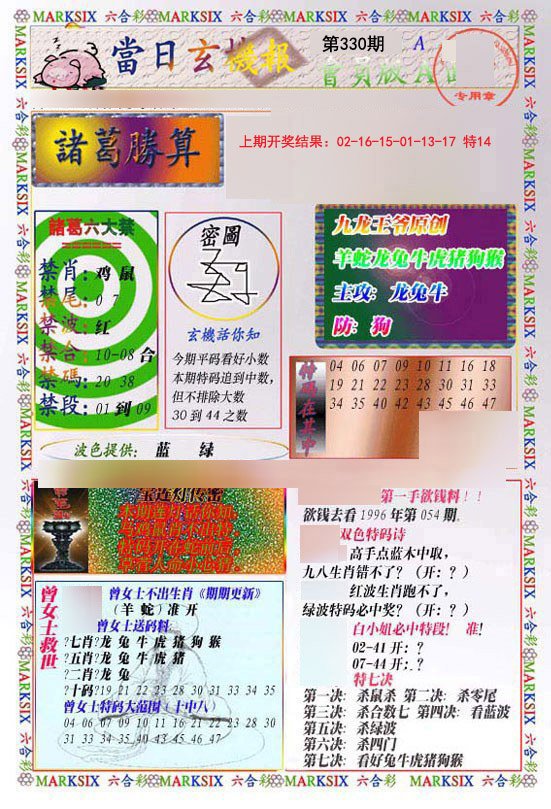 MARKSIX 六合彩 MARKSIX 六合彩 MARKSIX 六合彩 MARKSIX 六合彩
當日玄機报
第330期
A
會員版A
专用章
諸葛勝算
上期开奖结果：02-16-15-01-13-17 特14
諸葛六大禁
禁肖：鸡 鼠
禁尾：0 7
禁波：红
禁合：10-08 合
禁碼：20 38
禁段：01 到 09
密圖
玄機話你知
今期平码看好小数
本期特码追到中数，
但不排除大数
30 到 44 之数
九龙王爷原创
羊蛇龙兔牛虎猪狗猴
主攻：龙兔牛
防：狗
特码在其中
04 06 07 09 10 11 16 18
19 21 22 23 28 30 31 33
34 35 40 42 43 45 46 47
波色提供：蓝 绿
曾女士救世
曾女士不出生肖《期期更新》
（羊 蛇）准 开
曾女士送码料
?七肖?龙 兔 牛 虎 猪 狗 猴
?五肖?龙 兔 牛 虎 猪
?二肖?龙 兔
?十码?19 21 22 23 28 30 31 33 34 35
曾女士特码大范围（十中八）
04 06 07 09 10 11 16 21 22 23 28 30
31 33 34 35 40 43 42 45 46 47
第一手欲钱料！！
欲钱去看 1996 年第 054 期.
双色特码诗
高手点蓝木中取，
九八生肖错不了？（开：？）
红波生肖跑不了，
绿波特码必中奖？（开：？）
白小姐必中特段！ 准!
02-41 开：?
07-44 开：?
特七决
第一决：杀鼠杀 第二决：杀零尾
第三决：杀合数七 第四决：看蓝波
第五决：杀绿波
第六决：杀四门
第七决：看好兔牛虎猪狗猴
MARKSIX 六合彩 MARKSIX 六合彩 MARKSIX 六合彩 MARKSIX 六合彩